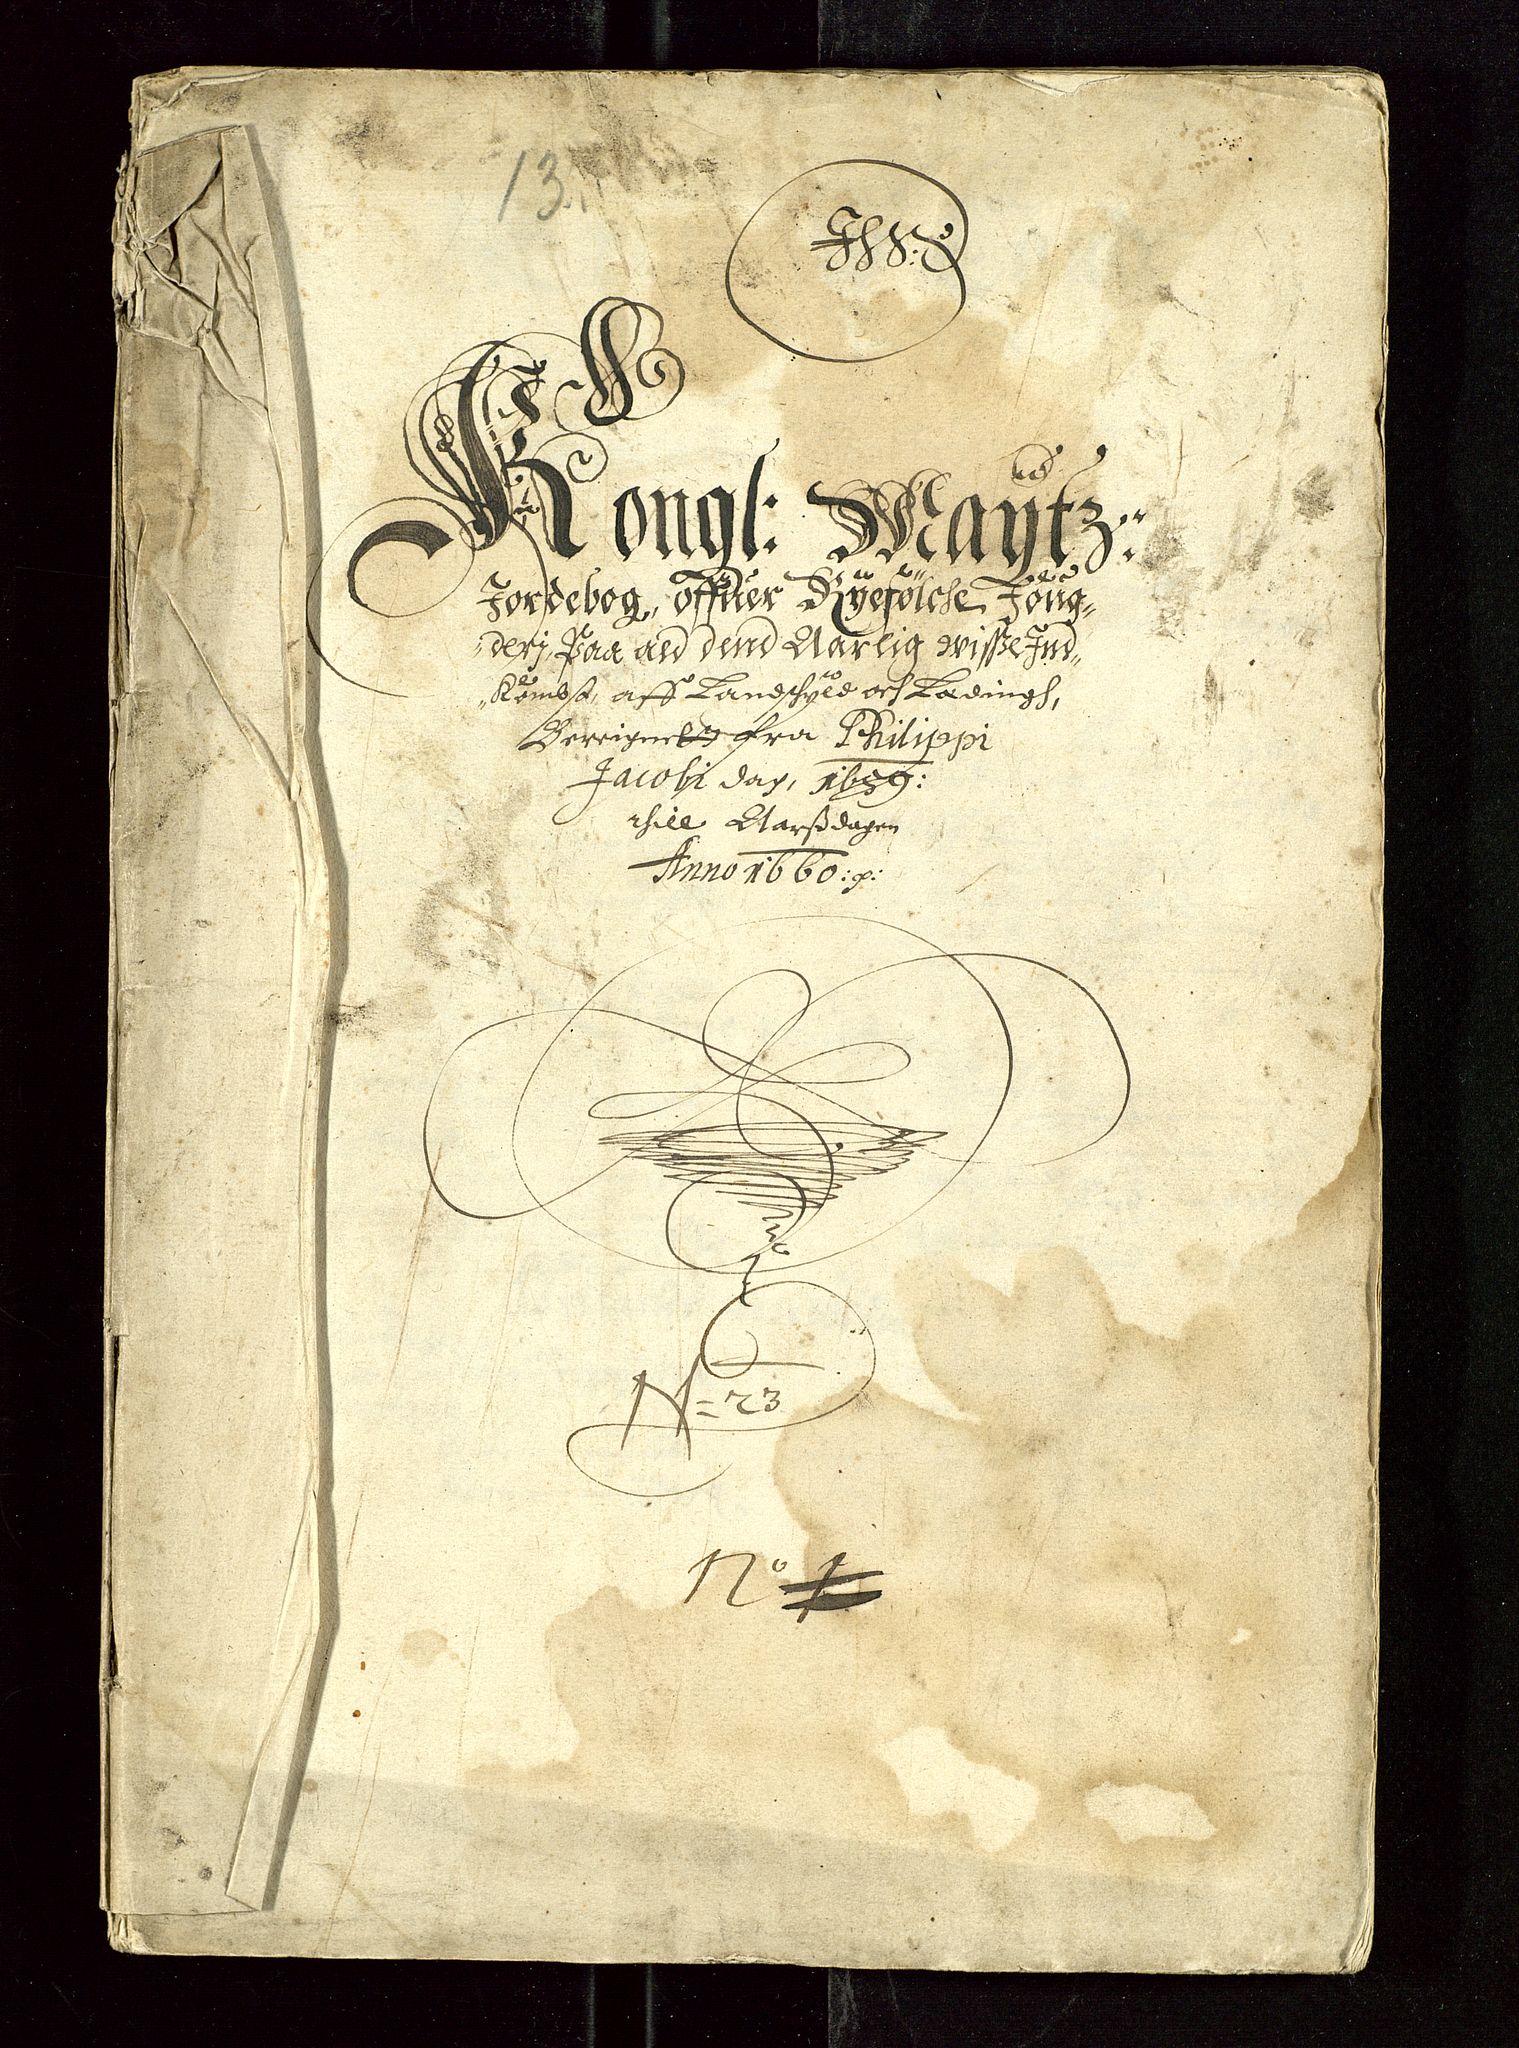 13.
Kongl: Maÿtz:
Jordebog, offuer Rÿefölche Foug-
derj, Paa ald dend Aarlig wisse Ind-
Kombst, aff Landschÿld och Leding,
Berignett fra Philippi
Jacobi dag, 1659:
thill Aarßdagen
Anno 1660:
N= 23
No 1